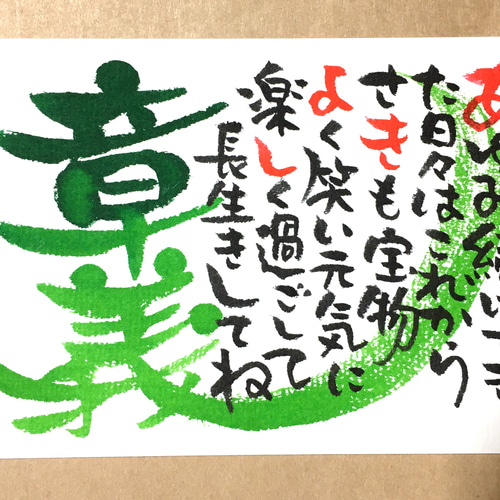 あゆみ続
た日々はこれから
さきも宝物
よく笑い元気に
楽しく過ごして
長生きしてね
章義